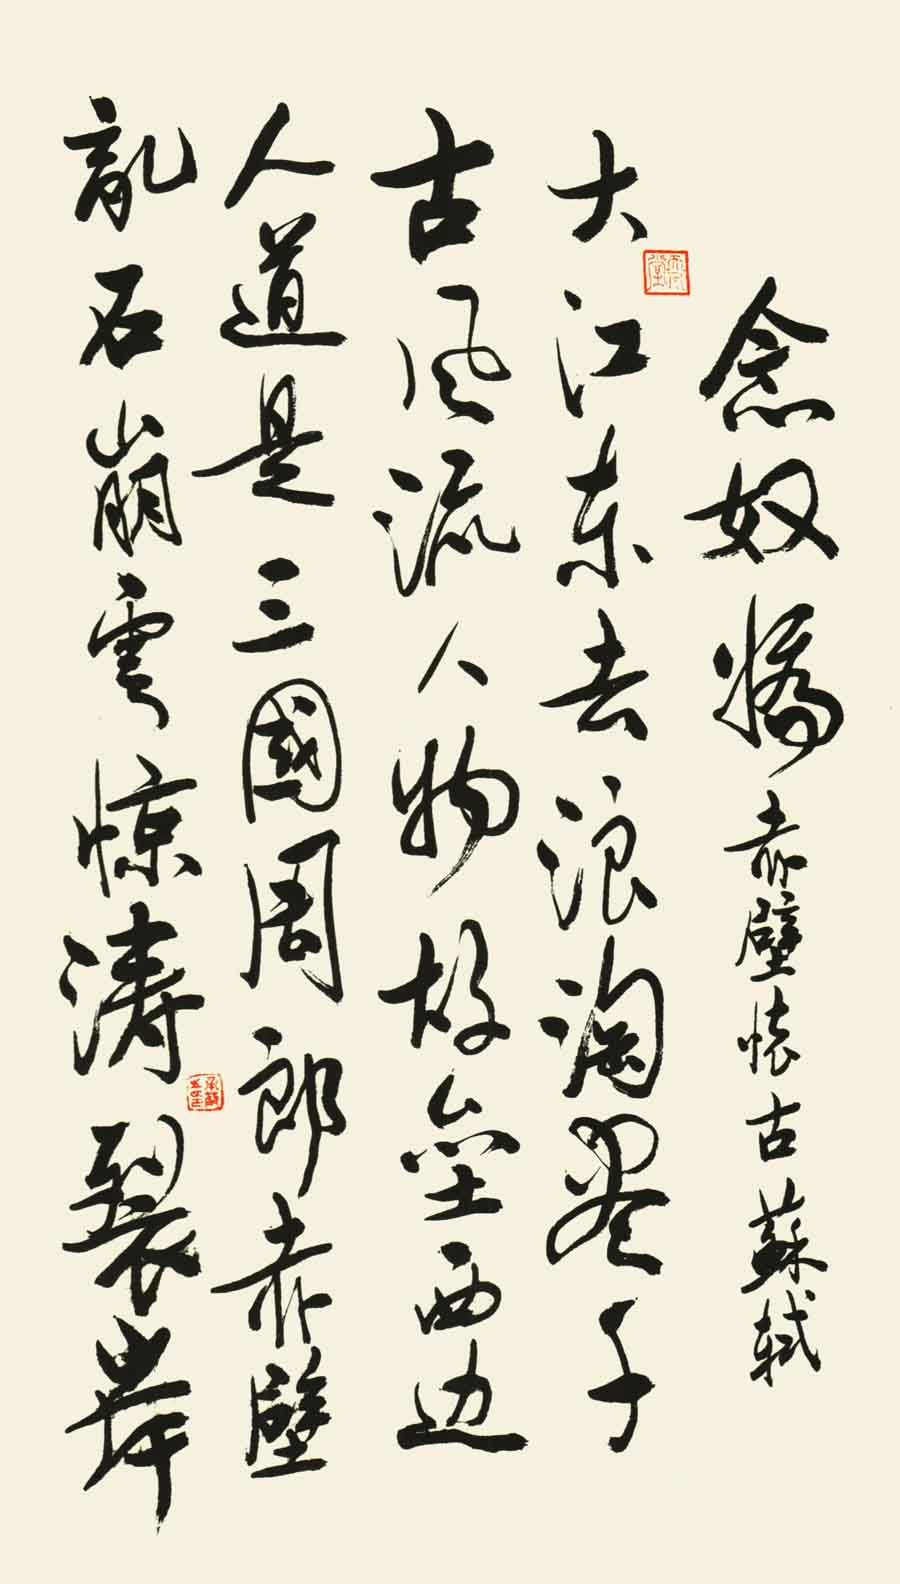 念奴娇赤壁懷古蘇軾
大江东去浪淘尽千
古风流人物故垒西边
人道是三國周郎赤壁
亂石崩雲惊涛裂岸